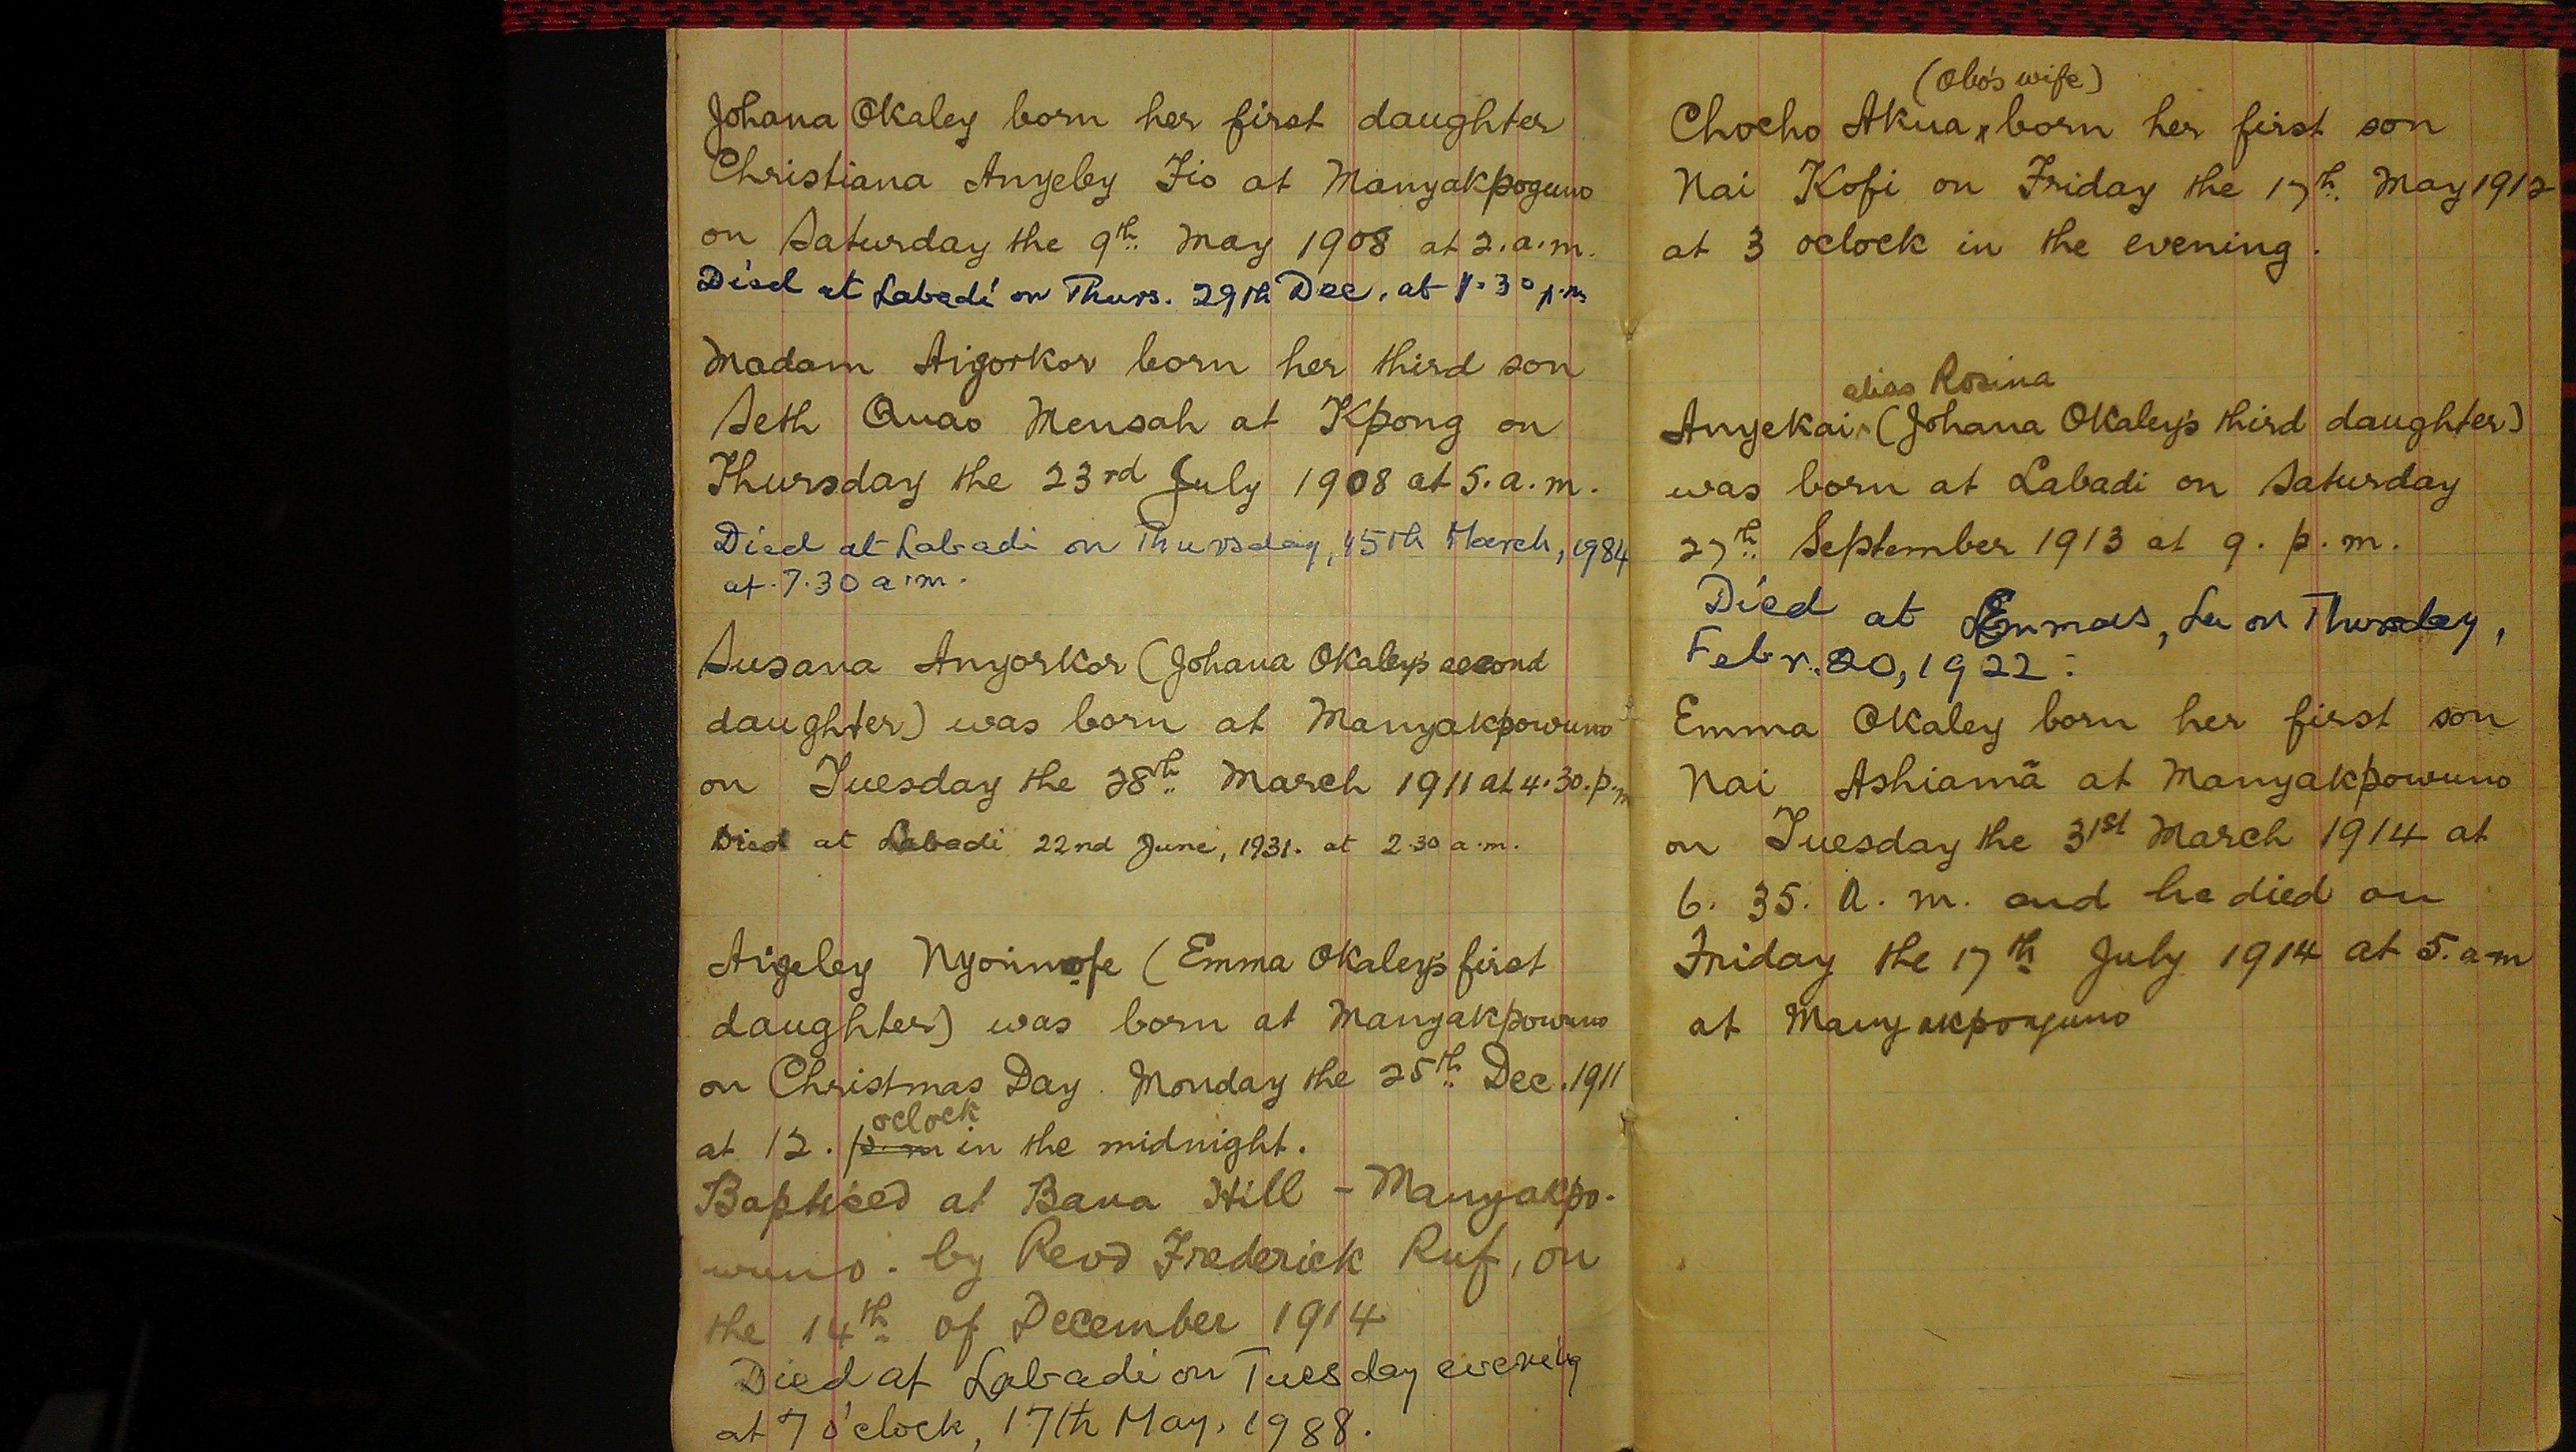 Johana Okaley born her first daughter
Christiana Anyeley Fio at Manyakpoguno
on Saturday the 9th May 1908 at 2.a.m.
Died at Labadi on Thurs. 29th Dec. at 1.30 p.m
Madam Aigorkor born her third son
Seth Quao Mensah at Kpong on
Thursday the 23rd July 1908 at 5.a.m.
Died at Labadi on Thursday, 15th March, 1984
at 7.30 a.m.
Susana Anyorkor (Johana Okaley's second
daughter) was born at Manyakpowuno
on Tuesday the 28th March 1911 at 4.30.p.m
Died at Labadi 22nd June, 1931. at 2.30 a.m.
Aigeley (Emma Okaley's first
daughter) was born at Manyakpowuno
on Christmas Day. Monday the 25th Dec. 1911
oclock
at 12. p.m in the midnight.
Baptised at Bana Hill - Manyakpo-
wuno. by Revd Frederick Ruf, on
the 14th of December 1914
Died at Labadi on Tuesday evening
at 7 o'clock, 17th May, 1988.
(Obo's wife)
Chocho Akua, born her first son
Nai Kofi on Friday the 17th May 1912
at 3 oclock in the evening.
alias Rosina
Anyekai (Johana Okaley's third daughter)
was born at Labadi on Saturday
27th September 1913 at 9. p.m.
Died at Emmaus, La on Thursday,
Febr. 20, 1922.
Emma Okaley born her first son
Nai Ashiamã at Manyakpowuno
on Tuesday the 31st March 1914 at
6. 35. A. m. and he died on
Friday the 17th July 1914 at 5.a.m
at Manyakpoguno